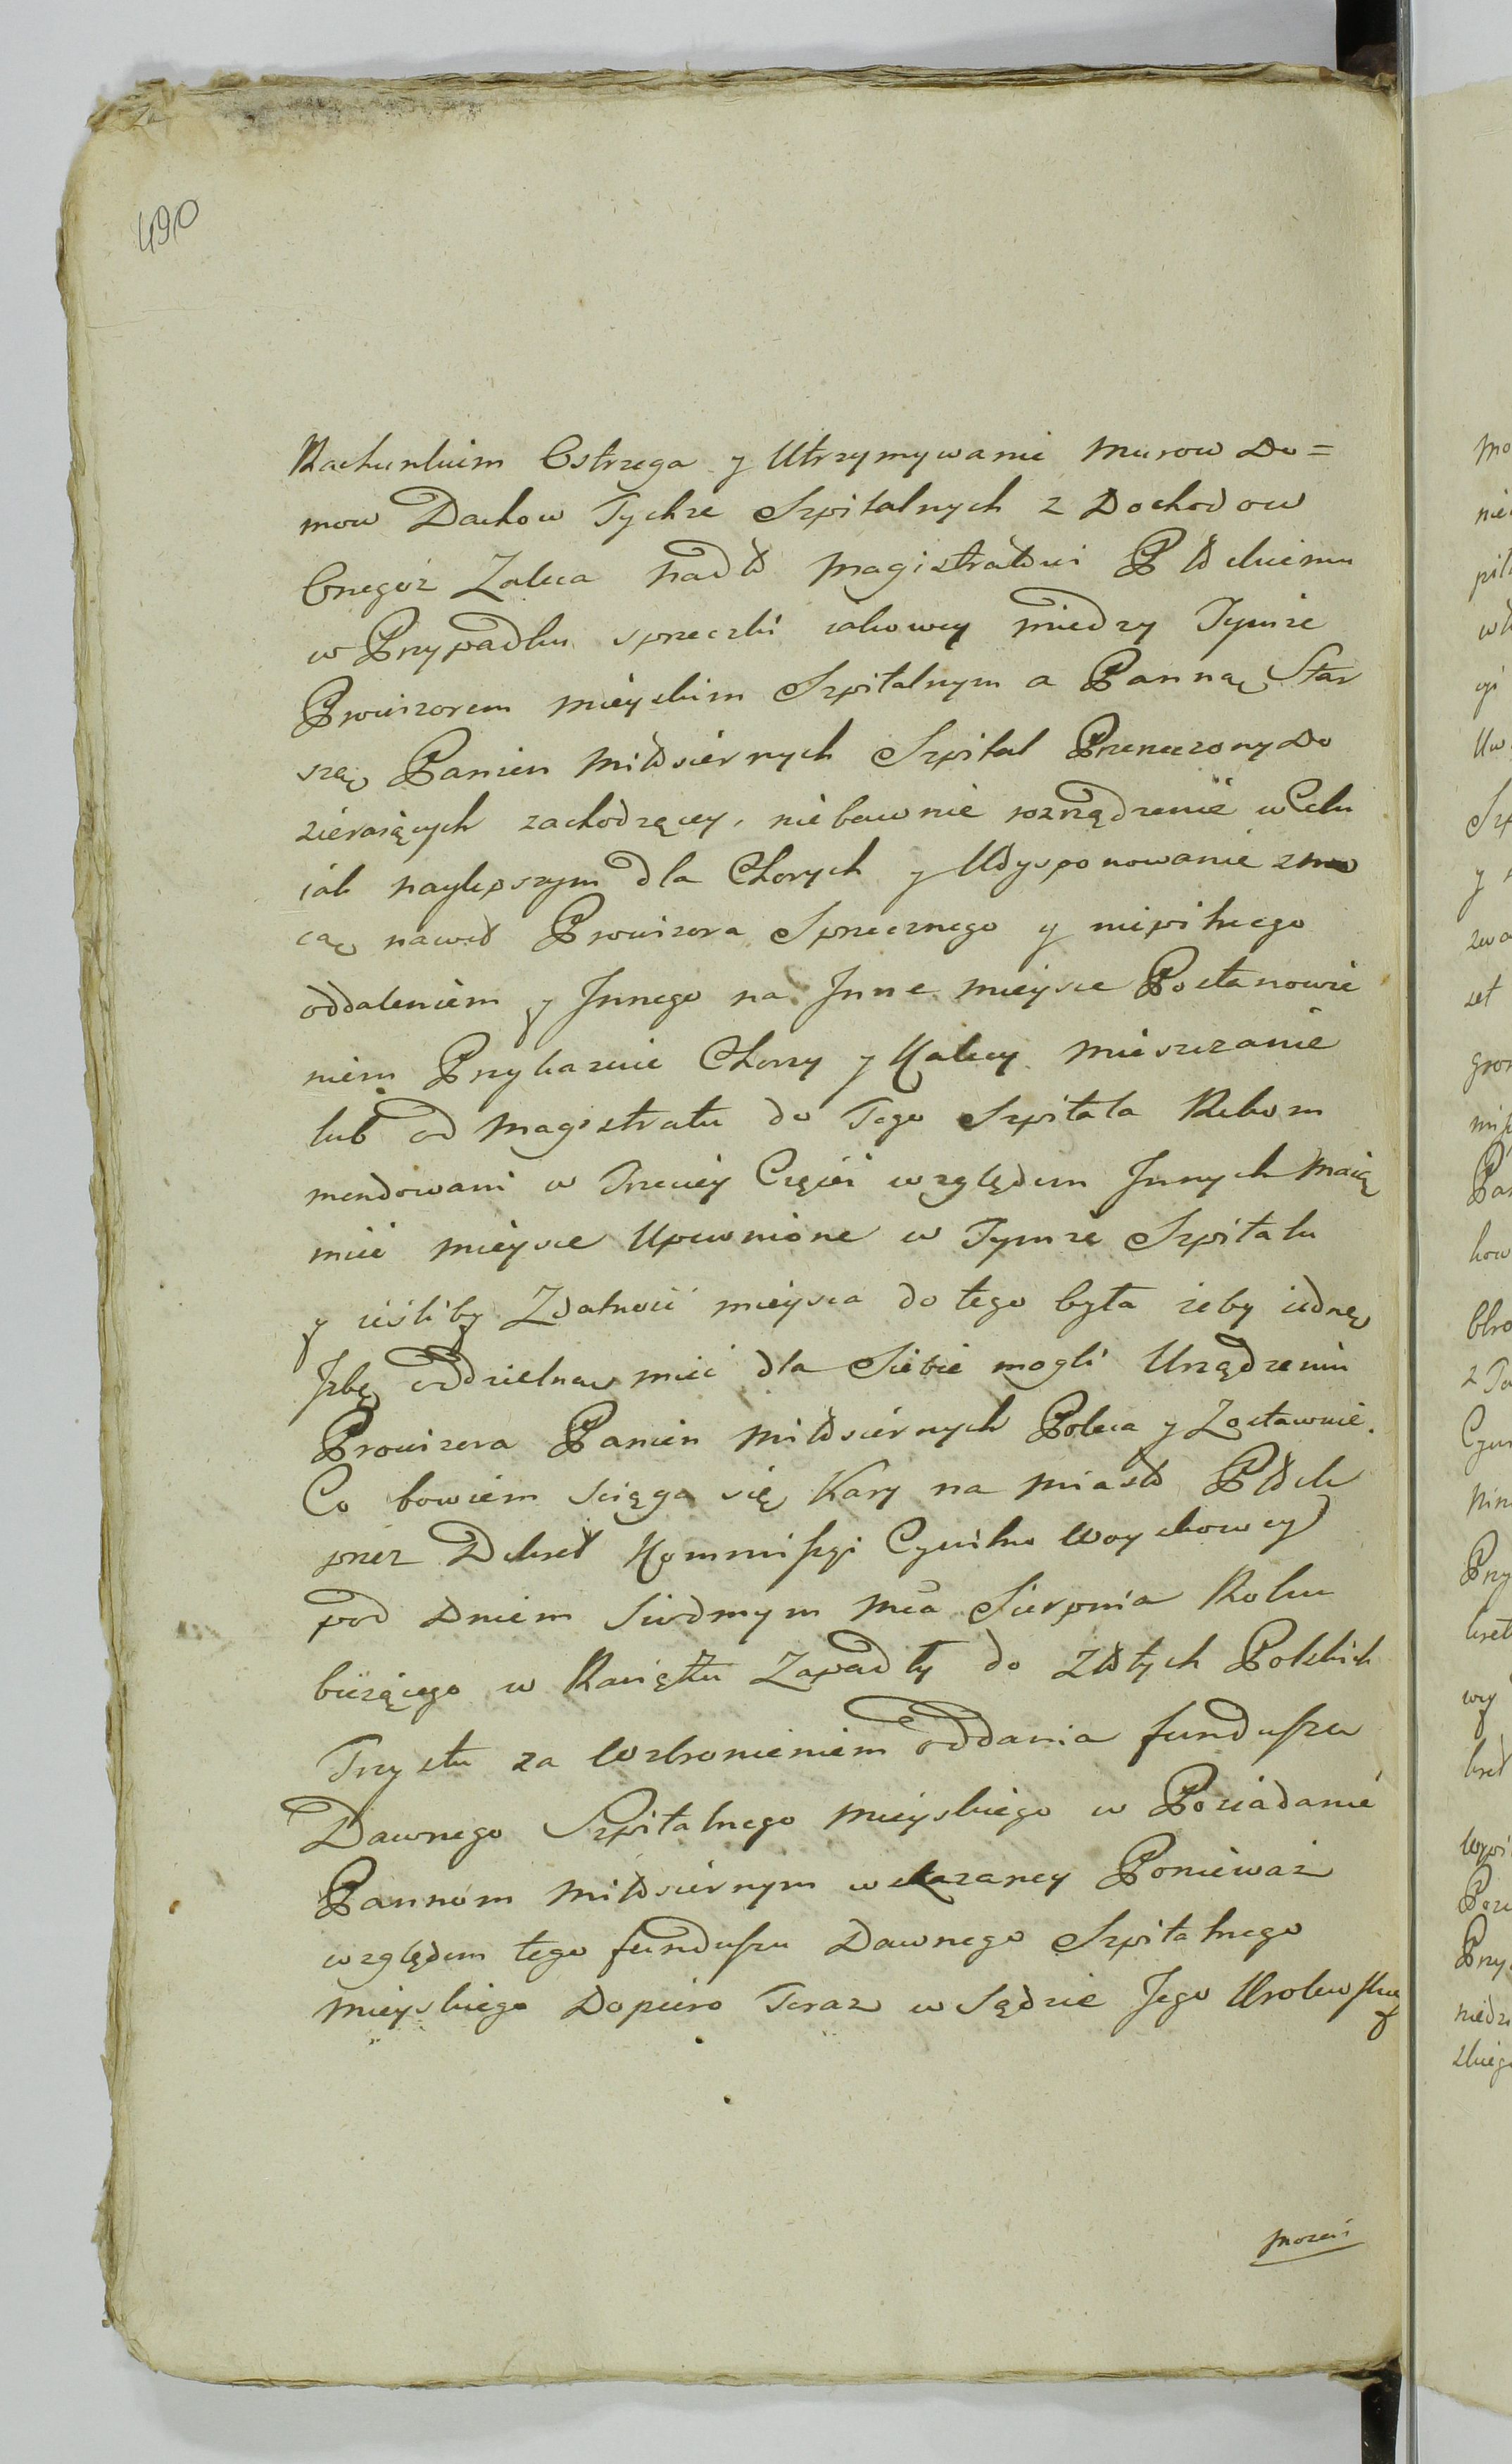 490
Rachunkiem Ostrzega y Utrzymywanie Murow Do=
mow Dachow Tychże Szpitalnych z Dochodow
Onegoż Zaleca nadto Magistratowi Płockiemu
w Przypadku sprzeczki iakowey miedzy Tymże
Prowizorem Mieyskim Szpitalnym a Panną Star
szą Panien Miłosiernych Szpital Rzeczony Do
zieraiących zachodzącey, niebawnie rozrządzenie w Celu
iak naylepszym dla Chorych y Udysponowanie
cąc nawet Prowizora Sprzecznego y niepilnego
oddaleniem y Innego na Inne mieysce Postanowie
niem Przykaznie Chorzy y Kalecy Mieszczanie
lub od Magistratu do Tego Szpitala Rekom
mendowani w Trzeciey Części względem Innych Maią
mieć mieysce Upewnione w Tymże Szpitalu
y ieśliby Zdatność mieysca do tego była żeby iedną
Izbę oddzielną mieć dla Siebie mogli Urządzeniu
Prowizora Panien Miłosiernych Poleca y Zostawuie.
Co bowiem ściąga się Kary na Miasto Płock
przez Dekret Kommissyi Cywilno Woyskowey
pod Dniem Siódmym Mca Sierpnia Roku
bieżącego w Raciążu Zapadły do Złotych Polskich
Trzystu za Wzbronieniem oddania funduszu
Dawnego Szpitalnego Mieyskiego w Posiadanie
Pannom Miłosiernym wskazaney Ponieważ
względem tego funduszu Dawnego Szpitalnego
Mieyskiego Dopiero Teraz w Sądzie Jego Krolewskiey